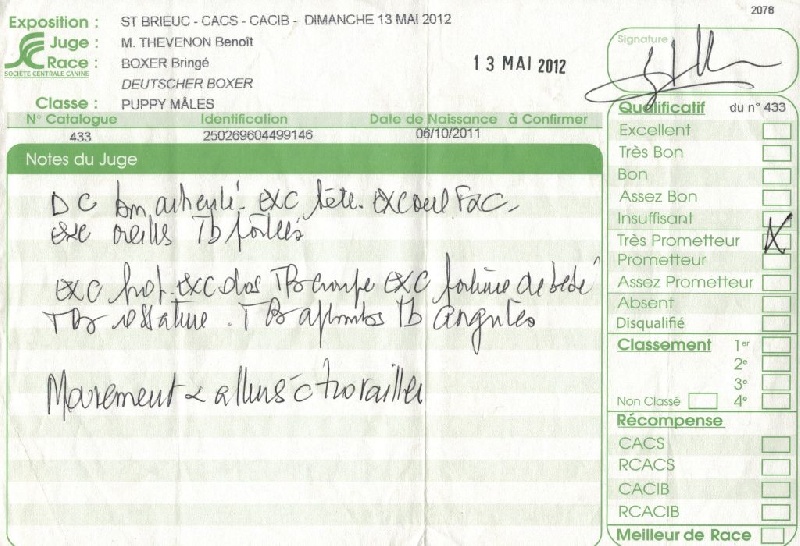 2078
Exposition : ST BRIEUC - CACS - CACIB - DIMANCHE 13 MAI 2012
Juge : M. THEVENON Benoît
Race : BOXER Bringé
SOCIÉTÉ CENTRALE CANINE
DEUTSCHER BOXER
Classe : PUPPY MÂLES
13 MAI 2012
Signature
N° Catalogue Identification Date de Naissance à Confirmer
433 250269604499146 06/10/2011
Notes du Juge
exc tête. exc oeil Fac.
exc oreilles Tb portées
exc prof. exc dos TB croupe exc poitrine de bébé
TB ossature. TB aplombs Tb angulés
Mouvement & allures à travailler
Qualificatif du n° 433
Excellent
Très Bon
Bon
Assez Bon
Insuffisant
Très Prometteur X
Prometteur
Assez Prometteur
Absent
Disqualifié
Classement 1er
2e
3e
Non Classé 4e
Récompense
CACS
RCACS
CACIB
RCACIB
Meilleur de Race